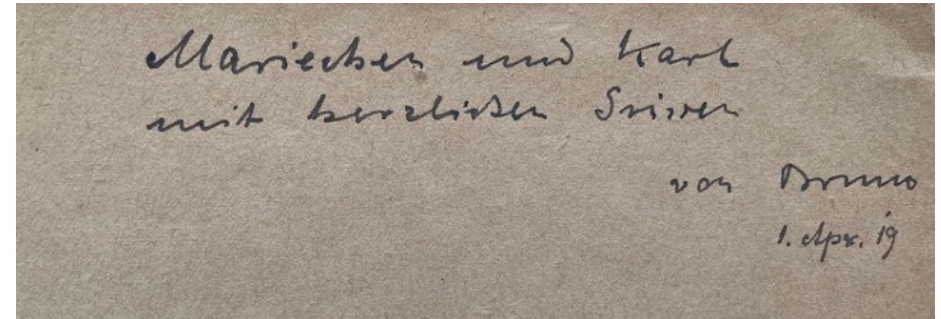 Mariechen und Karl
mit herzlichen Grüssen
von Bruno
1. Apr. 19